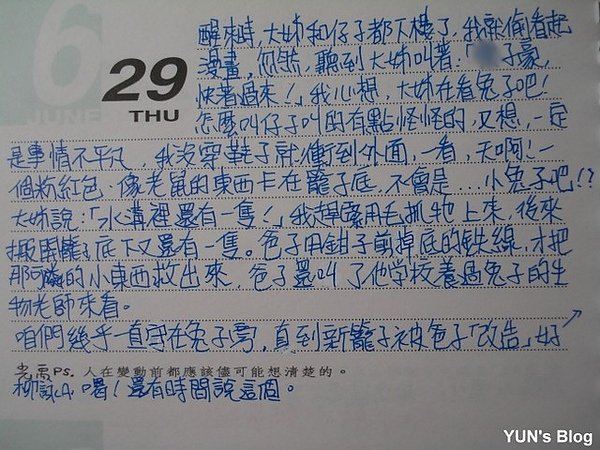 6
JUNE
29
THU
醒來時,大姊和仔子都下樓了,我就偷看起
漫畫,忽然,聽到大姊叫著:「子豪,
快著過來!」我心想,大姊在看兔子吧!
怎麼叫仔子叫的有點怪怪的,又想,一定
是事情不平凡,我沒穿鞋子就衝到外面,一看,天啊!一
個粉紅色、像老鼠的東西卡在籠子底,不會是…小兔子吧!?
大姊說:「水溝裡還有一隻!」我趕緊用毛抓牠上來,後來
搬開籠子底下又還有一隻。爸子用鉗子剪掉底的鉄線,才把
那可憐的小東西救出來,爸子還叫了他学校養過兔子的生
物老師來看。
咱們幾乎一直守在兔子旁,直到新籠子被爸子「改造」好
PS. 人在變動前都應該儘可能想清楚的。
還有時間說這個。
YUN's Blog